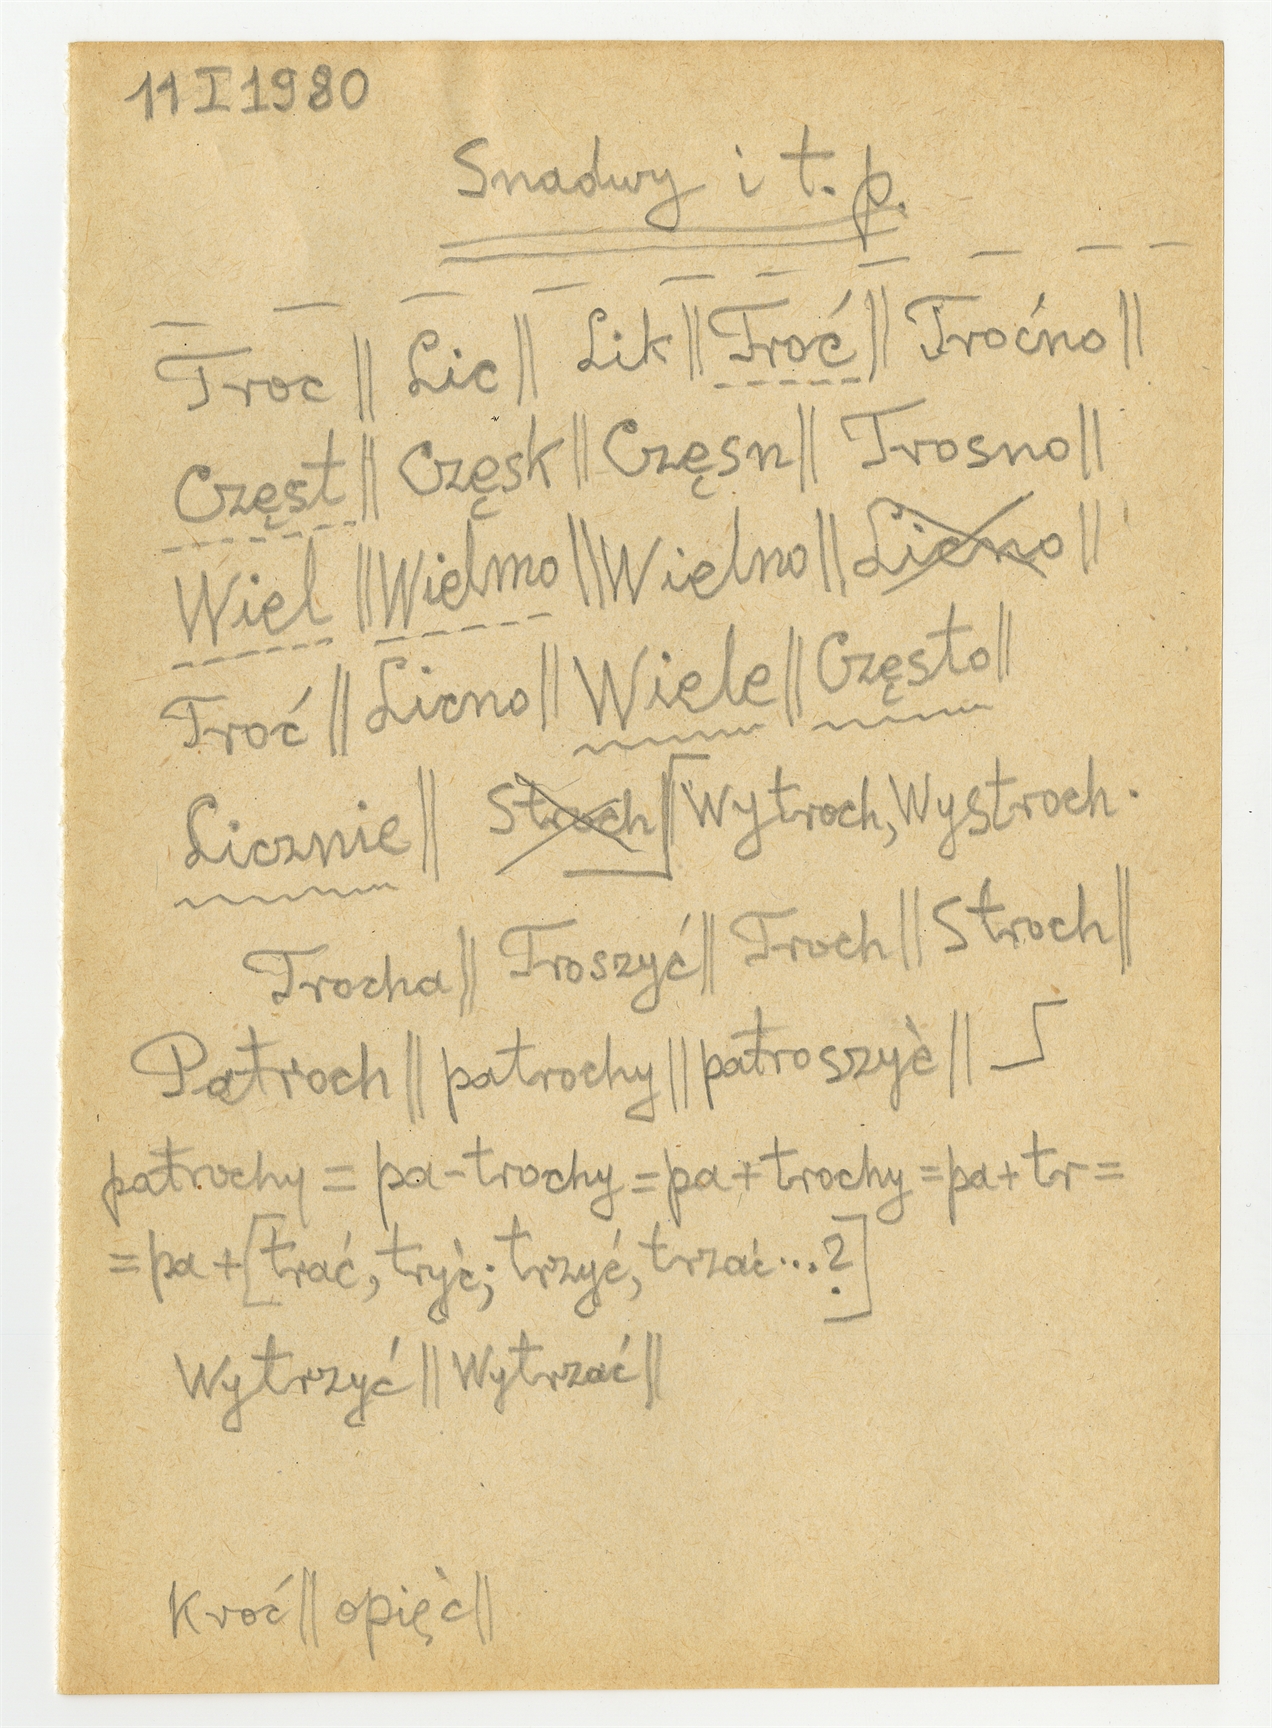 11 I 1980
Snadwy i t. p.
Troc || Lic || Lik || Troć || Troćno ||
Częst || Częsk || Częsn || Trosno ||
Wiel || Wielmo || Wielno || Licno ||
Troć || Licno || Wiele || Często ||
Licznie || Stroch Wytroch, Wystroch.
Trocha || Troszyć || Troch || Stroch ||
Patroch || patrochy || patroszyć ||
patrochy = pa-trochy = pa + trochy = pa + tr =
= pa + [trać, tryć; trzyć, trzać...?]
Wytrzyć || Wytrzać ||
Kroć || opięć ||